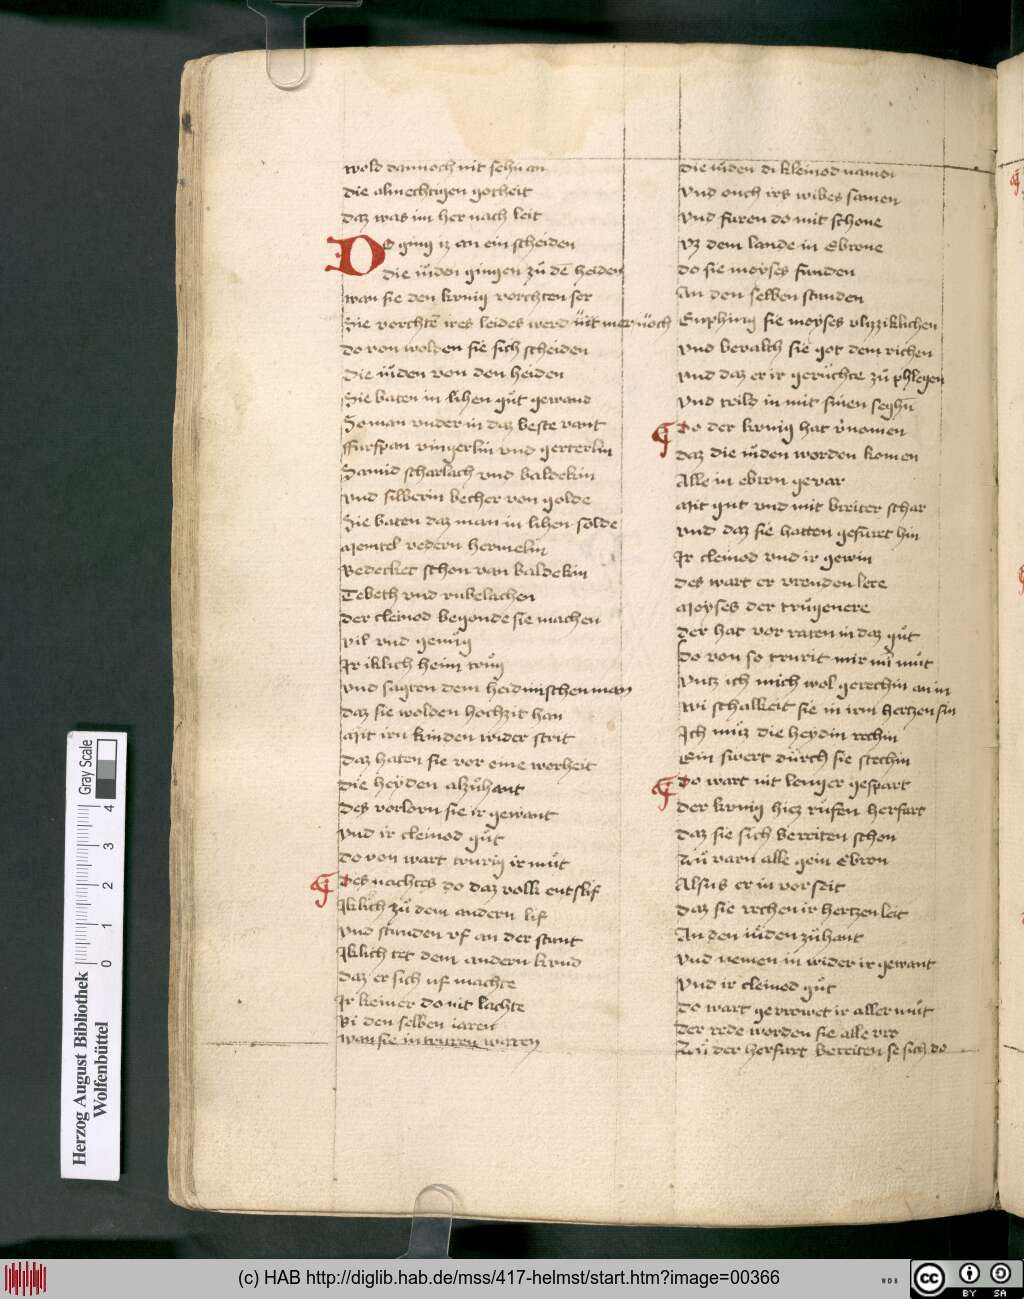 wold dannoch nit sehn an
die almechtigen gotheit
daz was im her nach leit
Do ging iz an ein scheiden
die iuͦden gingen zuͦ dē heiden
wan sie den kunig vorchten ser
Sie vorchtē ires leides werd nit mer noch
do von wolden sie sich scheiden
die iuͦden von den heiden
Sie baten in lihen guͦt gewand
So man vnder in daz beste vant
ffurspan vingerlin vnd gerterlin
Samid scharlach vnd baldekin
vnd silberin becher von golde
Sie baten daz man in lihen solde
Mentel vedern hermelin
Bedecket schon van baldekin
Tebeth vnd rubelachen
der cleinod begonde sie machen
vil vnd genuͦg
Ir iklich heim truͦg
vnd sagten dem heidnischen man
daz sie wolden hochzit han
Mit irn kinden wider strit
daz haten sie vor eine worheit
die heyden alzuͦhant
des vorlorn sie ir gewant
vnd ir cleinod guͦt
do von wart trurig ir muͦt
Des nachtes do daz volk entslif
Iklich zuͦ dem andern lif
vnd stunden vf an der stunt
Iklich tet dem andern kund
daz er sich uf machte
Ir keiner do nit lachte
Bi den selben iaren
wan sie in truren waren
die iuden di kleinod namen
vnd ouch irs wibes samen
vnd furen do mit schone
vz dem lande in Ebrone
do sie moyses funden
An den selben stunden
Enphing sie moyses vlizziklichen
vnd bevalch sie got dem richen
vnd daz er ir geruchte zuͦ phlegen
vnd teild in mit sinen seghn
Do der kunig hat vᵒnomen
daz die iuͦden worden komen
Alle in ebron gevar
Mit gut vnd mit breiter schar
vnd daz sie hatten gefuret hin
Ir cleinod vnd ir gewin
des wart er vreuden lere
Moyses der truͦgenere
der hat vor raten in daz guͦt
do von so trurit mir nuͦ muͦt
vntz ich mich wol gerechin an im
wi schalkeit sie in irm hertzen sin
Ich muͦz die heydin rechin
Ein swert durch sie stechin
Do wart nit lenger gespart
der kunig hiez ruͦfen herfart
daz sie sich bereiten schon
Zuͦ varn alle gein Ebron
Alsus er in vorseit
daz sie rechen ir hertzen leit
An den iuͦden zuͦhant
vnd nemen in wider ir gewant
vnd ir cleinod guͦt
do wart gevrowet ir aller muͦt
der rede worden sie alle vro
Zuͦ der herfart bereiten se sich do
Herzog August Bibliothek
Wolfenbüttel
0 1 2 3 4
Gray Scale
(c) HAB http://diglib.hab.de/mss/417-helmst/start.htm?image=00366
WDB
cc BY SA